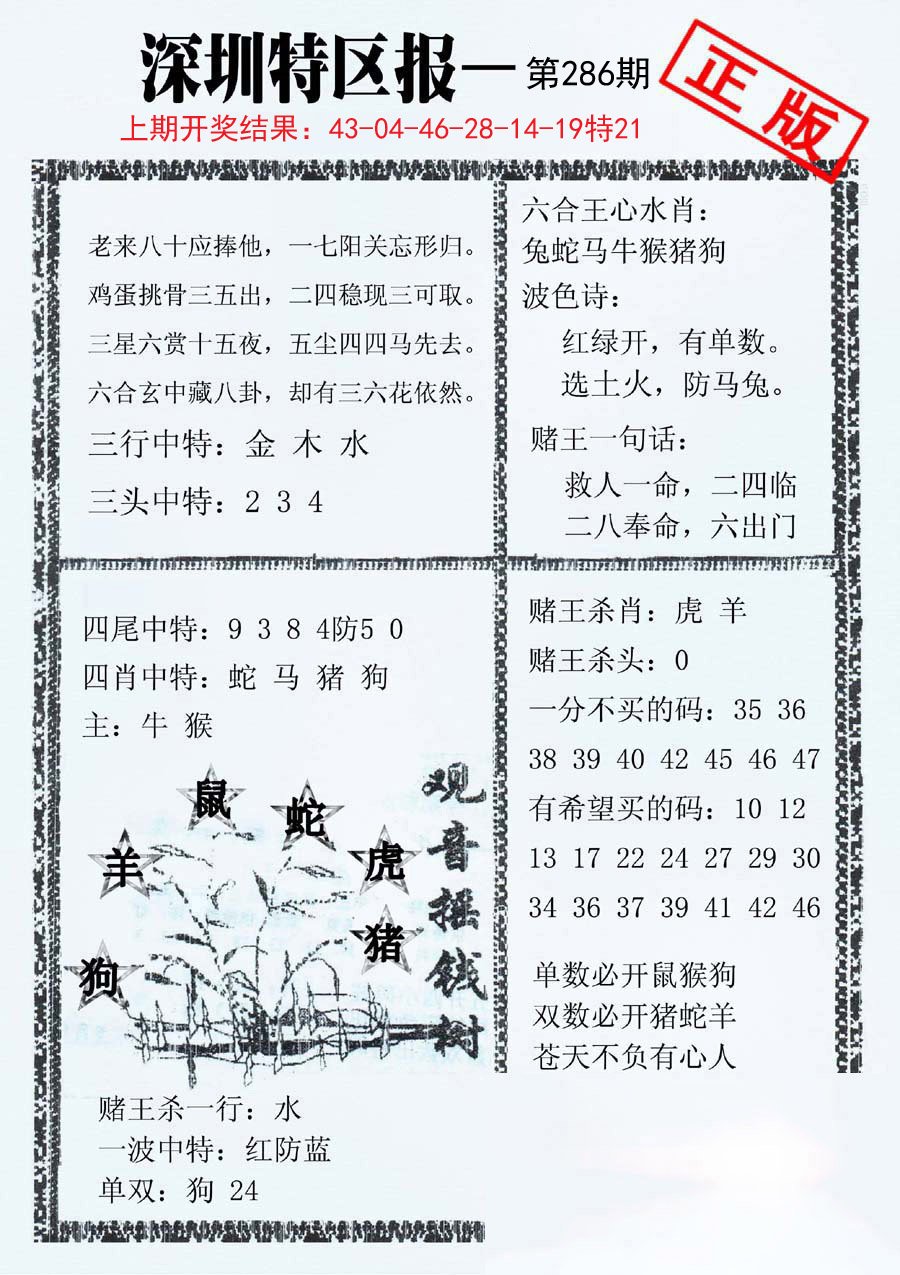 深圳特区报— 第286期
正版
上期开奖结果：43-04-46-28-14-19特21
老来八十应捧他，一七阳关忘形归。
鸡蛋挑骨三五出，二四稳现三可取。
三星六赏十五夜，五尘四四马先去。
六合玄中藏八卦，却有三六花依然。
三行中特：金 木 水
三头中特：2 3 4
六合王心水肖：
兔蛇马牛猴猪狗
波色诗：
红绿开，有单数。
选土火，防马兔。
赌王一句话：
救人一命，二四临
二八奉命，六出门
四尾中特：9 3 8 4防5 0
四肖中特：蛇 马 猪 狗
主：牛 猴
鼠
蛇
羊
虎
猪
狗
观音摇钱树
赌王杀一行：水
一波中特：红防蓝
单双：狗 24
赌王杀肖：虎 羊
赌王杀头：0
一分不买的码：35 36
38 39 40 42 45 46 47
有希望买的码：10 12
13 17 22 24 27 29 30
34 36 37 39 41 42 46
单数必开鼠猴狗
双数必开猪蛇羊
苍天不负有心人